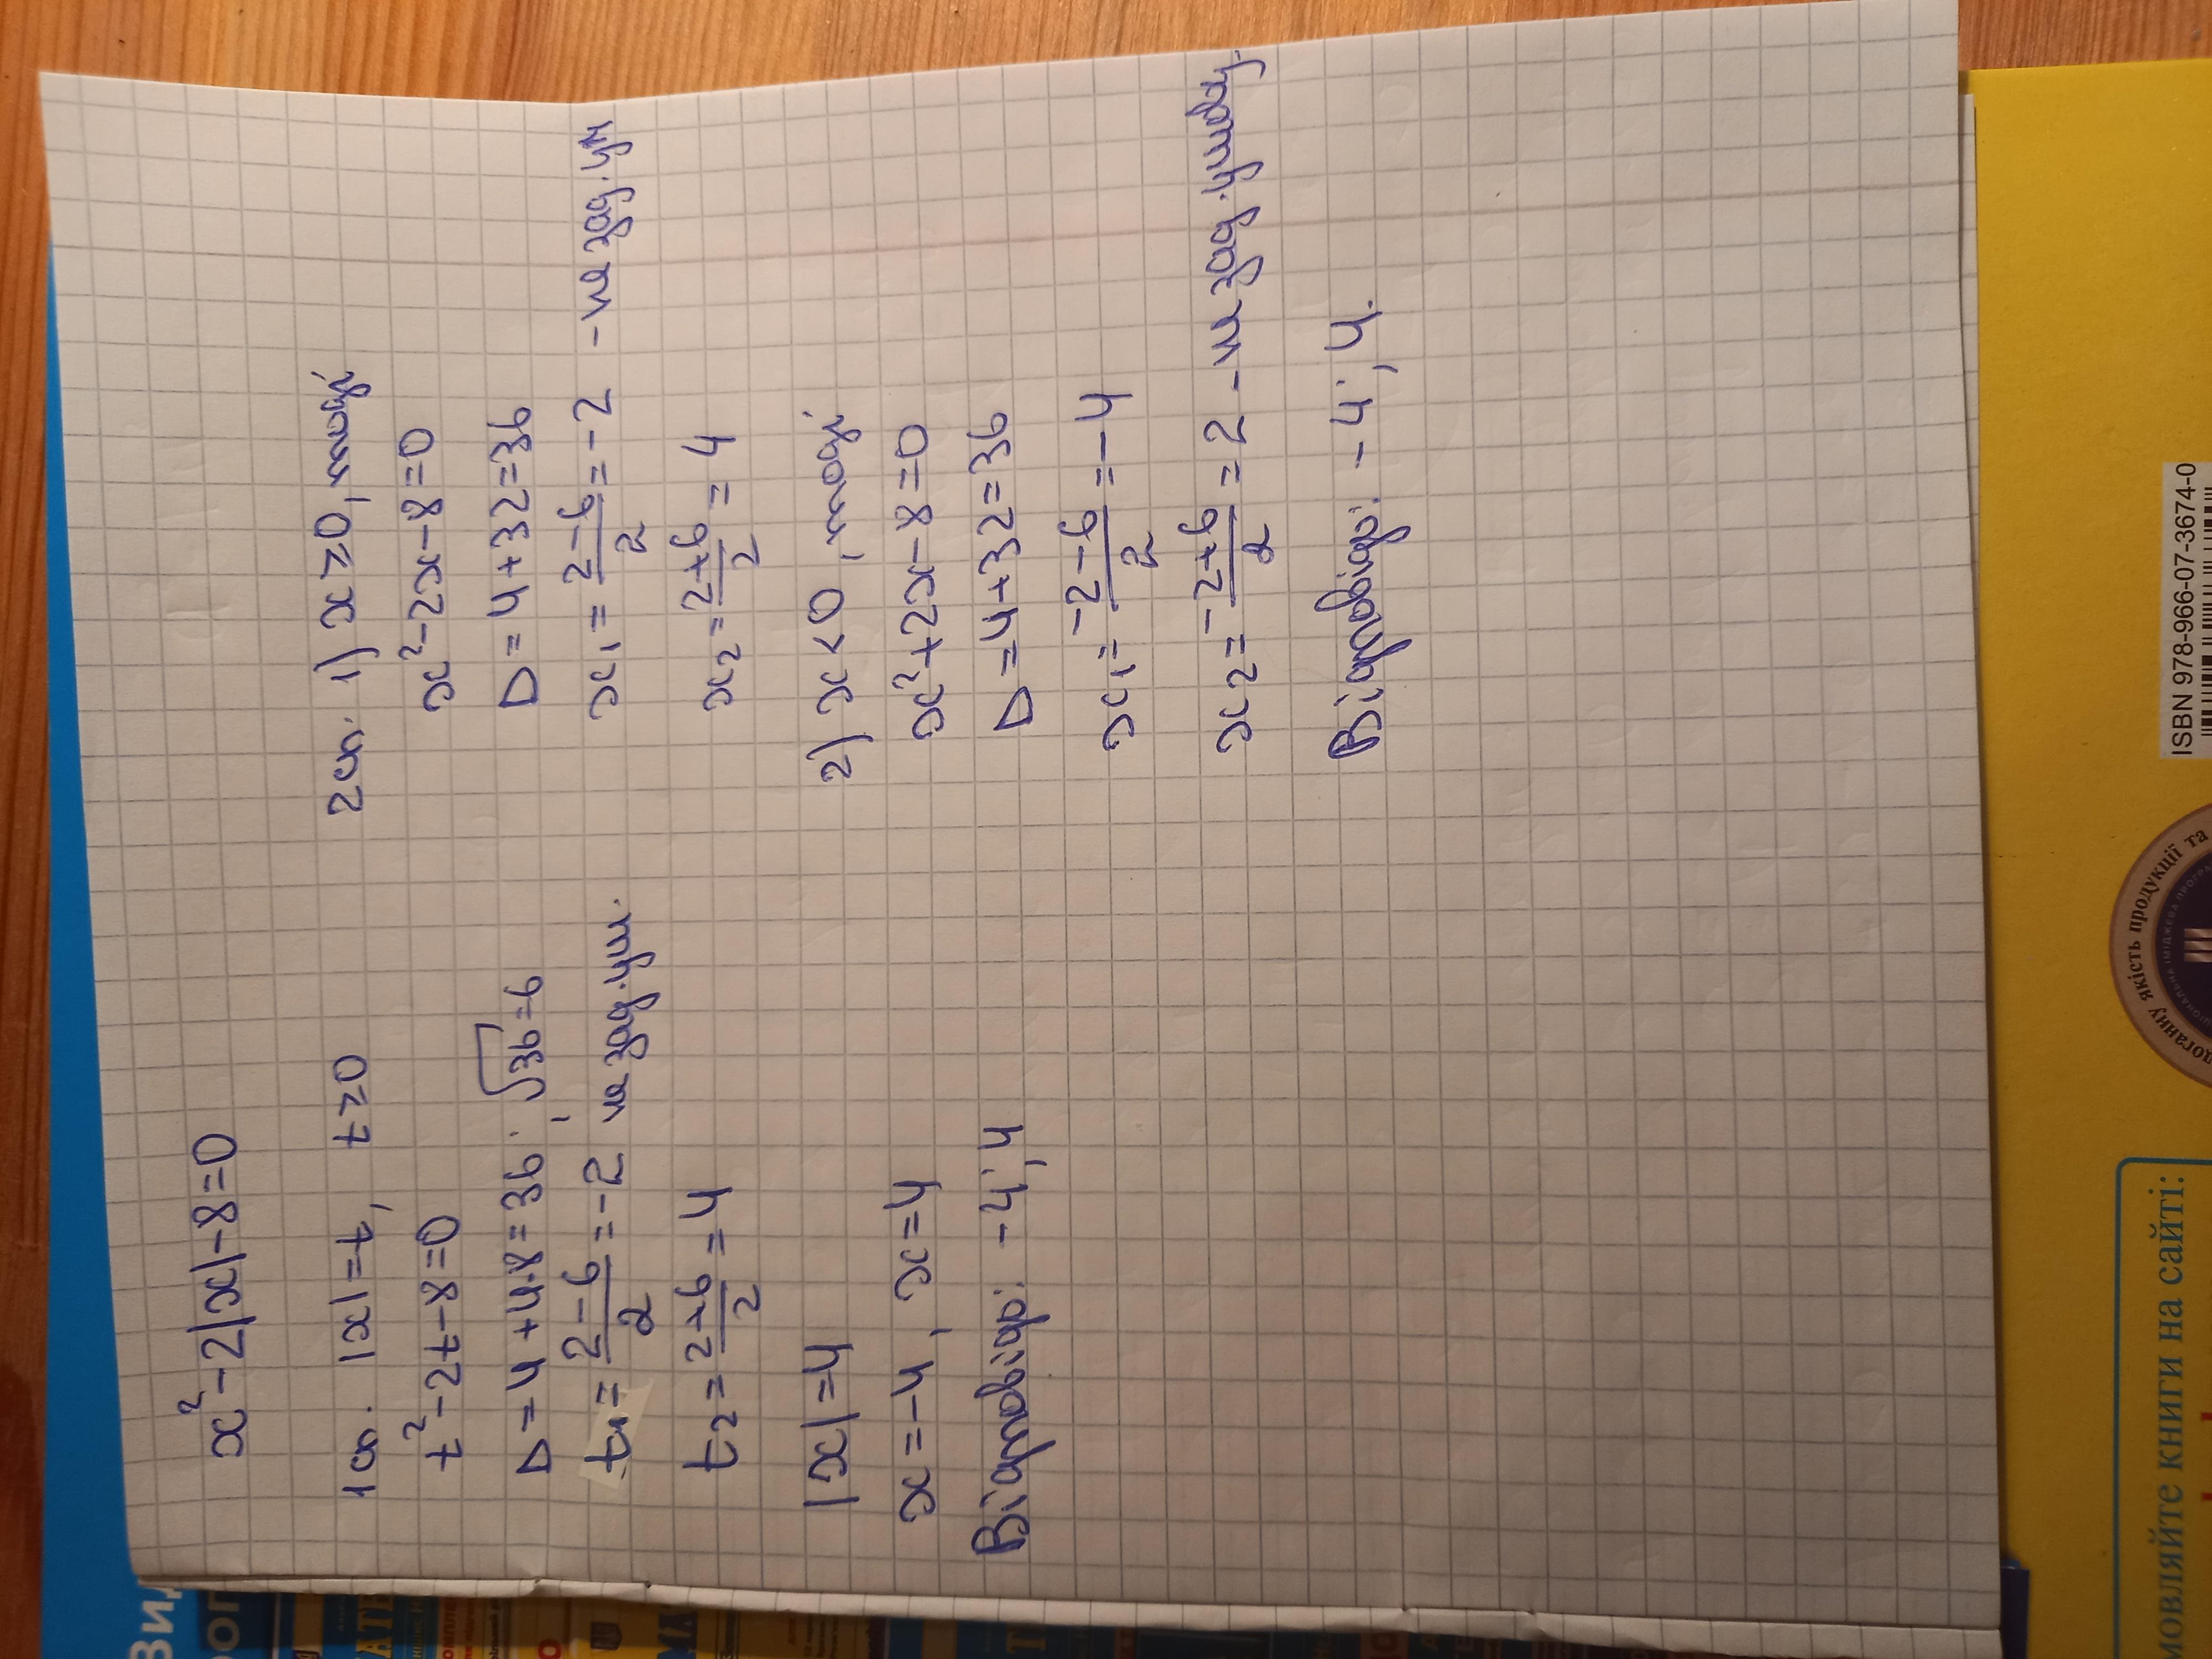 x² - 2|x| - 8 = 0
1 сп. |x| = t, t ≥ 0
t² - 2t - 8 = 0
D = 4 + 4·8 = 36; √36 = 6
t₁ = (2 - 6)/2 = -2 не зад. ум.
t₂ = (2 + 6)/2 = 4
|x| = 4
x = -4, x = 4
Відповідь: -4; 4
2 сп. 1) x ≥ 0, тоді
x² - 2x - 8 = 0
D = 4 + 32 = 36
x₁ = (2 - 6)/2 = -2 - не зад. ум
x₂ = (2 + 6)/2 = 4
2) x < 0, тоді
x² + 2x - 8 = 0
D = 4 + 32 = 36
x₁ = (-2 - 6)/2 = -4
x₂ = (-2 + 6)/2 = 2 - не зад. умову.
Відповідь: -4; 4.
ISBN 978-966-07-3674-0
якість продукції та
мовляйте книги на сайті: